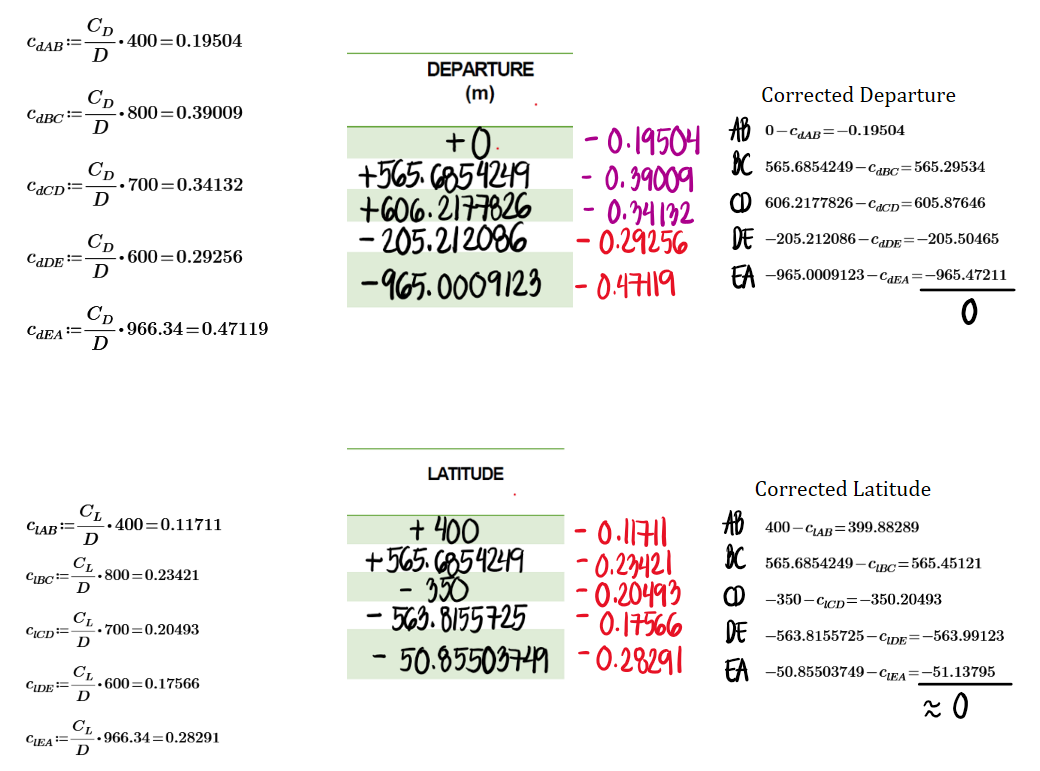 c_dAB := C_D/D · 400 = 0.19504
c_dBC := C_D/D · 800 = 0.39009
c_dCD := C_D/D · 700 = 0.34132
c_dDE := C_D/D · 600 = 0.29256
c_dEA := C_D/D · 966.34 = 0.47119
DEPARTURE
(m)
+0 - 0.19504
+565.6854249 - 0.39009
+606.2177826 - 0.34132
- 205.212086 - 0.29256
-965.0009123 - 0.47119
Corrected Departure
AB 0 - c_dAB = -0.19504
BC 565.6854249 - c_dBC = 565.29534
CD 606.2177826 - c_dCD = 605.87646
DE -205.212086 - c_dDE = -205.50465
EA -965.0009123 - c_dEA = -965.47211
0
c_lAB := C_L/D · 400 = 0.11711
c_lBC := C_L/D · 800 = 0.23421
c_lCD := C_L/D · 700 = 0.20493
c_lDE := C_L/D · 600 = 0.17566
c_lEA := C_L/D · 966.34 = 0.28291
LATITUDE
+ 400 - 0.11711
+565.6854249 - 0.23421
- 350 - 0.20493
- 563.8155725 - 0.17566
- 50.85503749 - 0.28291
Corrected Latitude
AB 400 - c_lAB = 399.88289
BC 565.6854249 - c_lBC = 565.45121
CD -350 - c_lCD = -350.20493
DE -563.8155725 - c_lDE = -563.99123
EA -50.85503749 - c_lEA = -51.13795
≈ 0